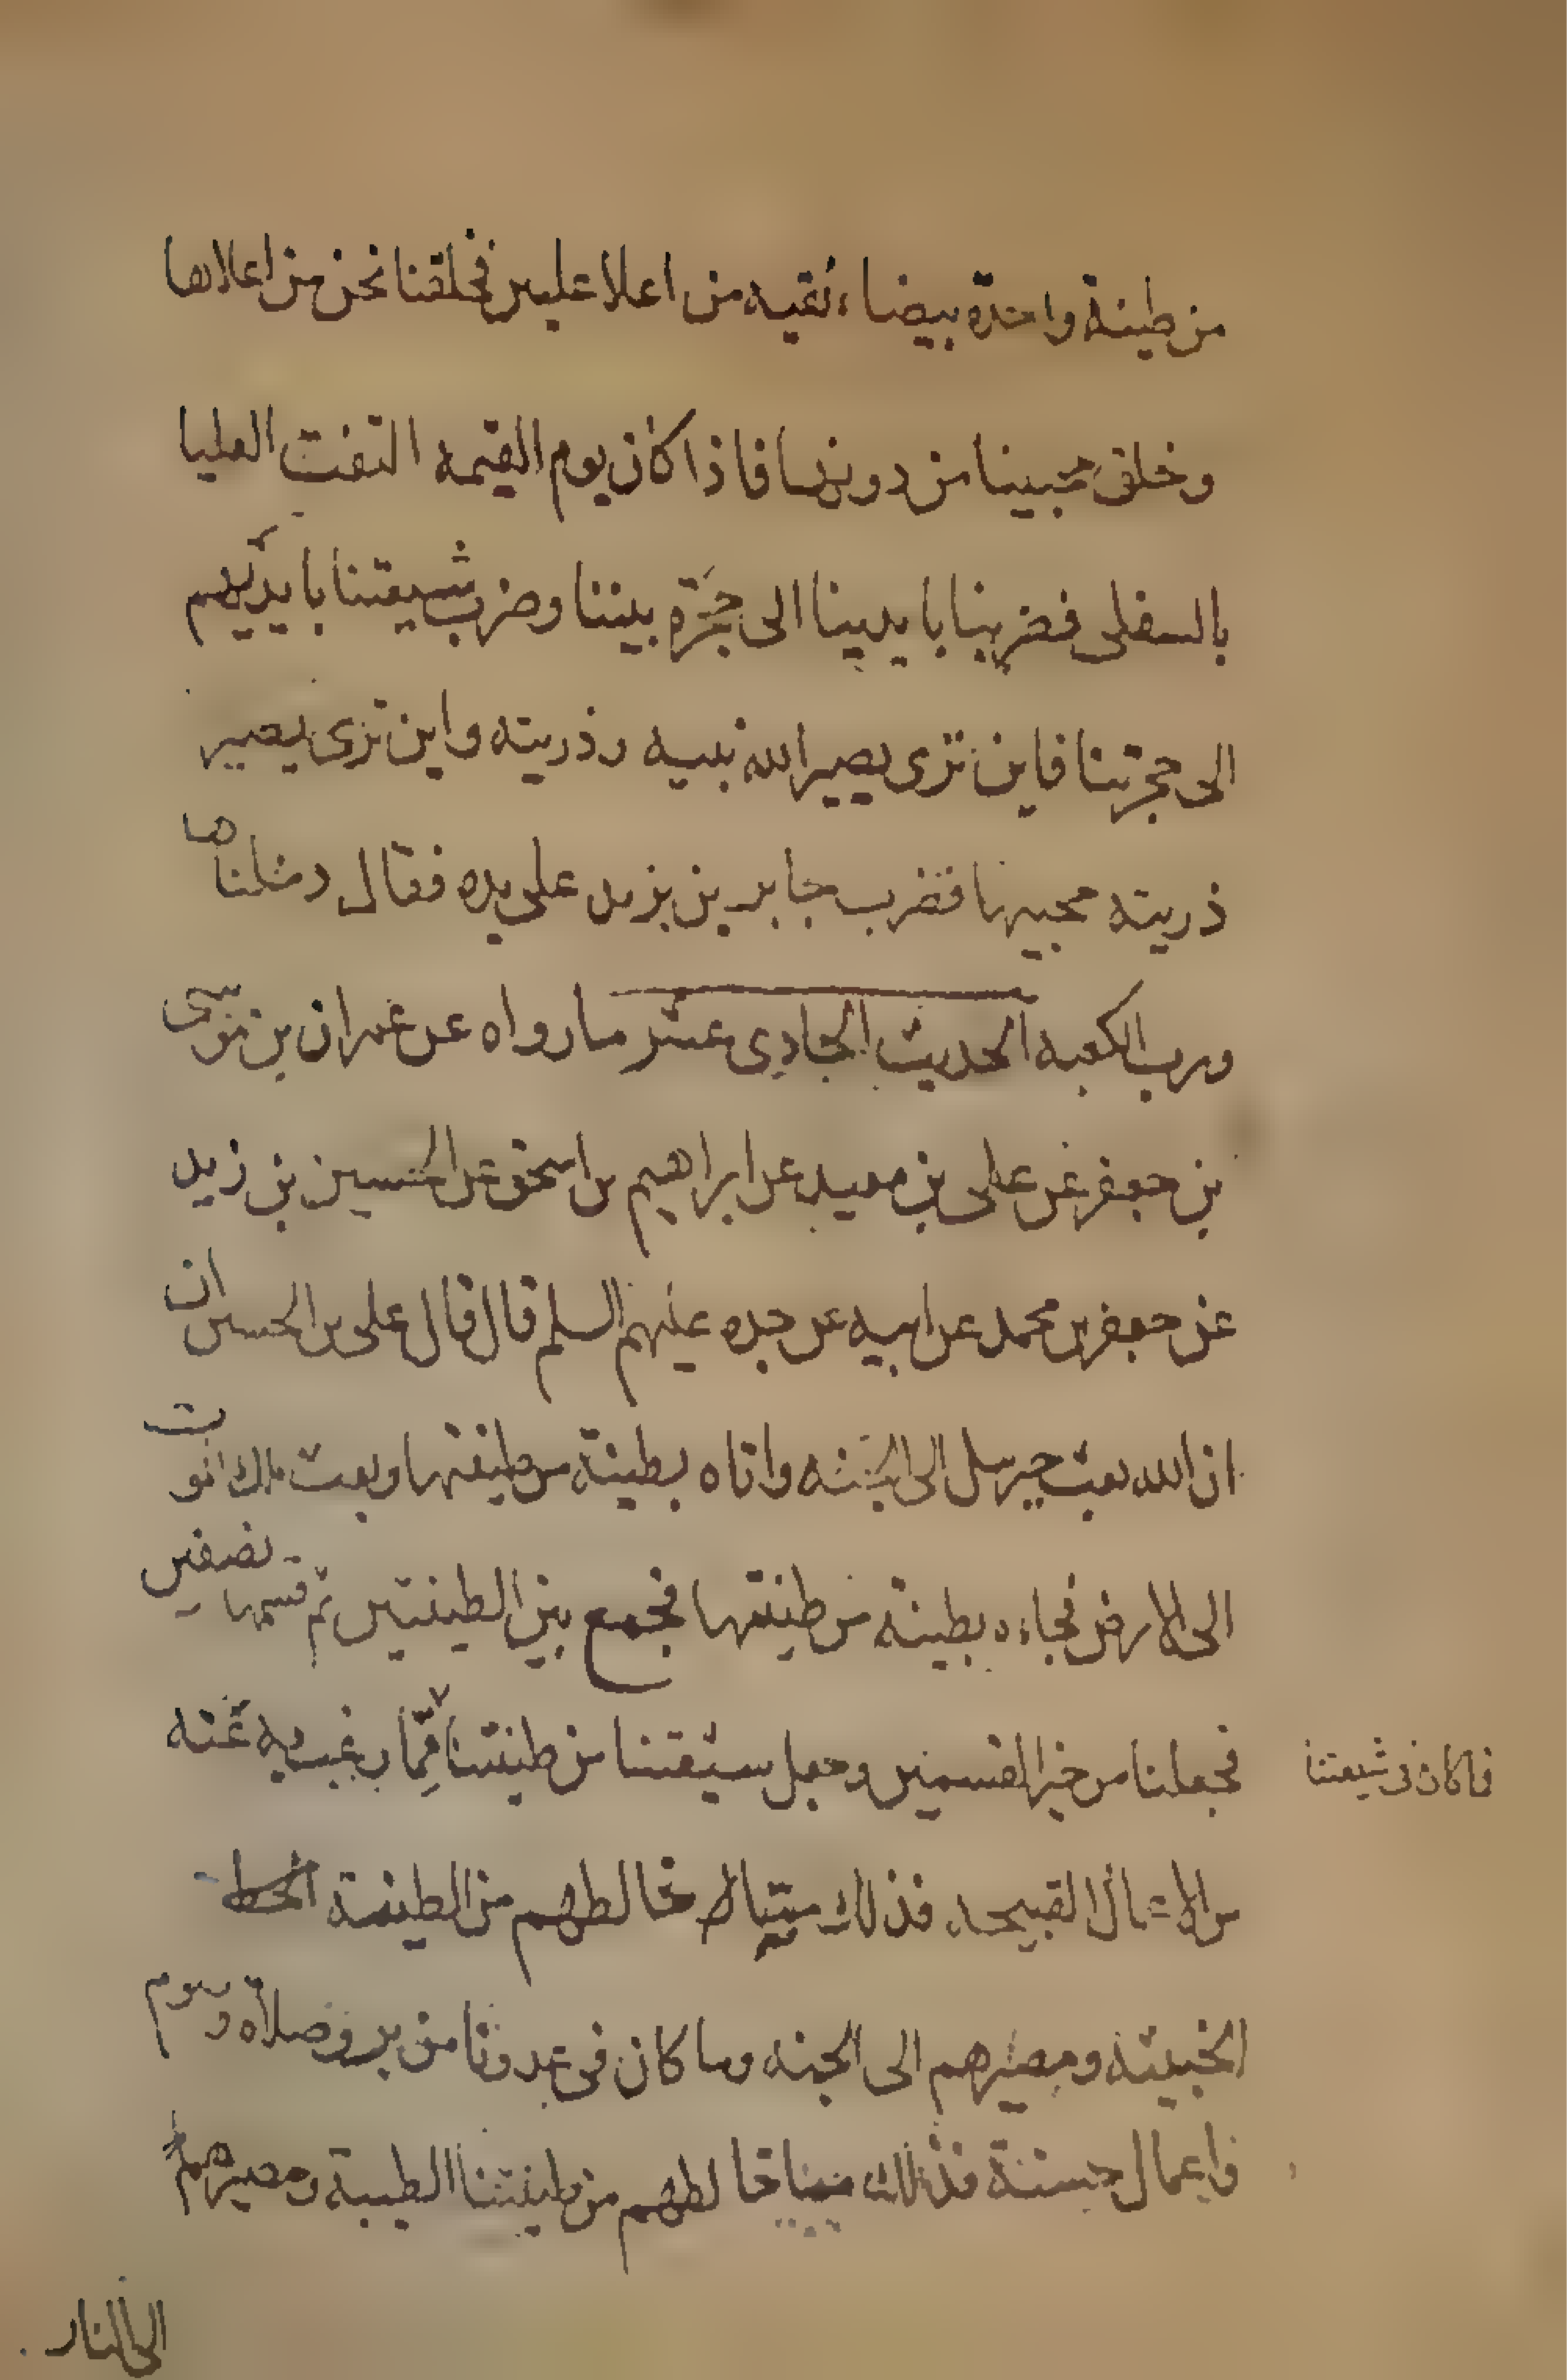 من طينة واحدة بيضاء نقيه من اعلا عليين فخلقنا نحن من اعلاها
وخلق محبينا من دونها فاذا كان يوم القيمه التفت العليا
بالسفلى فضربنا بايدينا الى حجزة بيننا وضرب شيعتنا بايديهم
الى حجزتنا فاين ترى يصير الله نبيه وذريته واين ترى يصير
ذريته محبيها فضرب جابر بن يزيد على يده فقال دخلناها
ورب الكعبه الحديث الحادى عشر ما رواه عن عمران بن موسى
بن جعفر عن على بن معبد عن ابراهيم بن اسحق عن الحسين بن زيد
عن جعفر بن محمد عن ابيه عن جده عليهم السلم قال قال على بن الحسين ان
ان الله بعث جبرئيل الى الجنه واتاه بطينة من طينتها وبعث ملك الموت
الى الارض فجاءه بطينة من طينتها فجمع بين الطينتين ثم قسمها نصفين
فجعلنا من خير القسمين وجعل شيعتنا من طينتنا مما يرغب به عنه
فما كان فى شيعتنا
من الاعمال القبيحه فذلك مما خالطهم من الطينة
الخبيثه ومصيرهم الى الجنه وما كان فى عدونا من بر وصلاة وصوم
واعمال حسنة فذلك مما خالطهم من طينتنا الطيبة ومصيرهم
الى النار